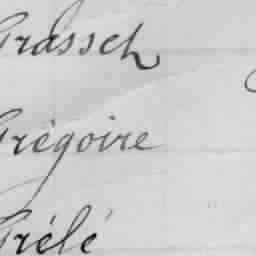 Grassch
Grégoire
Grélé